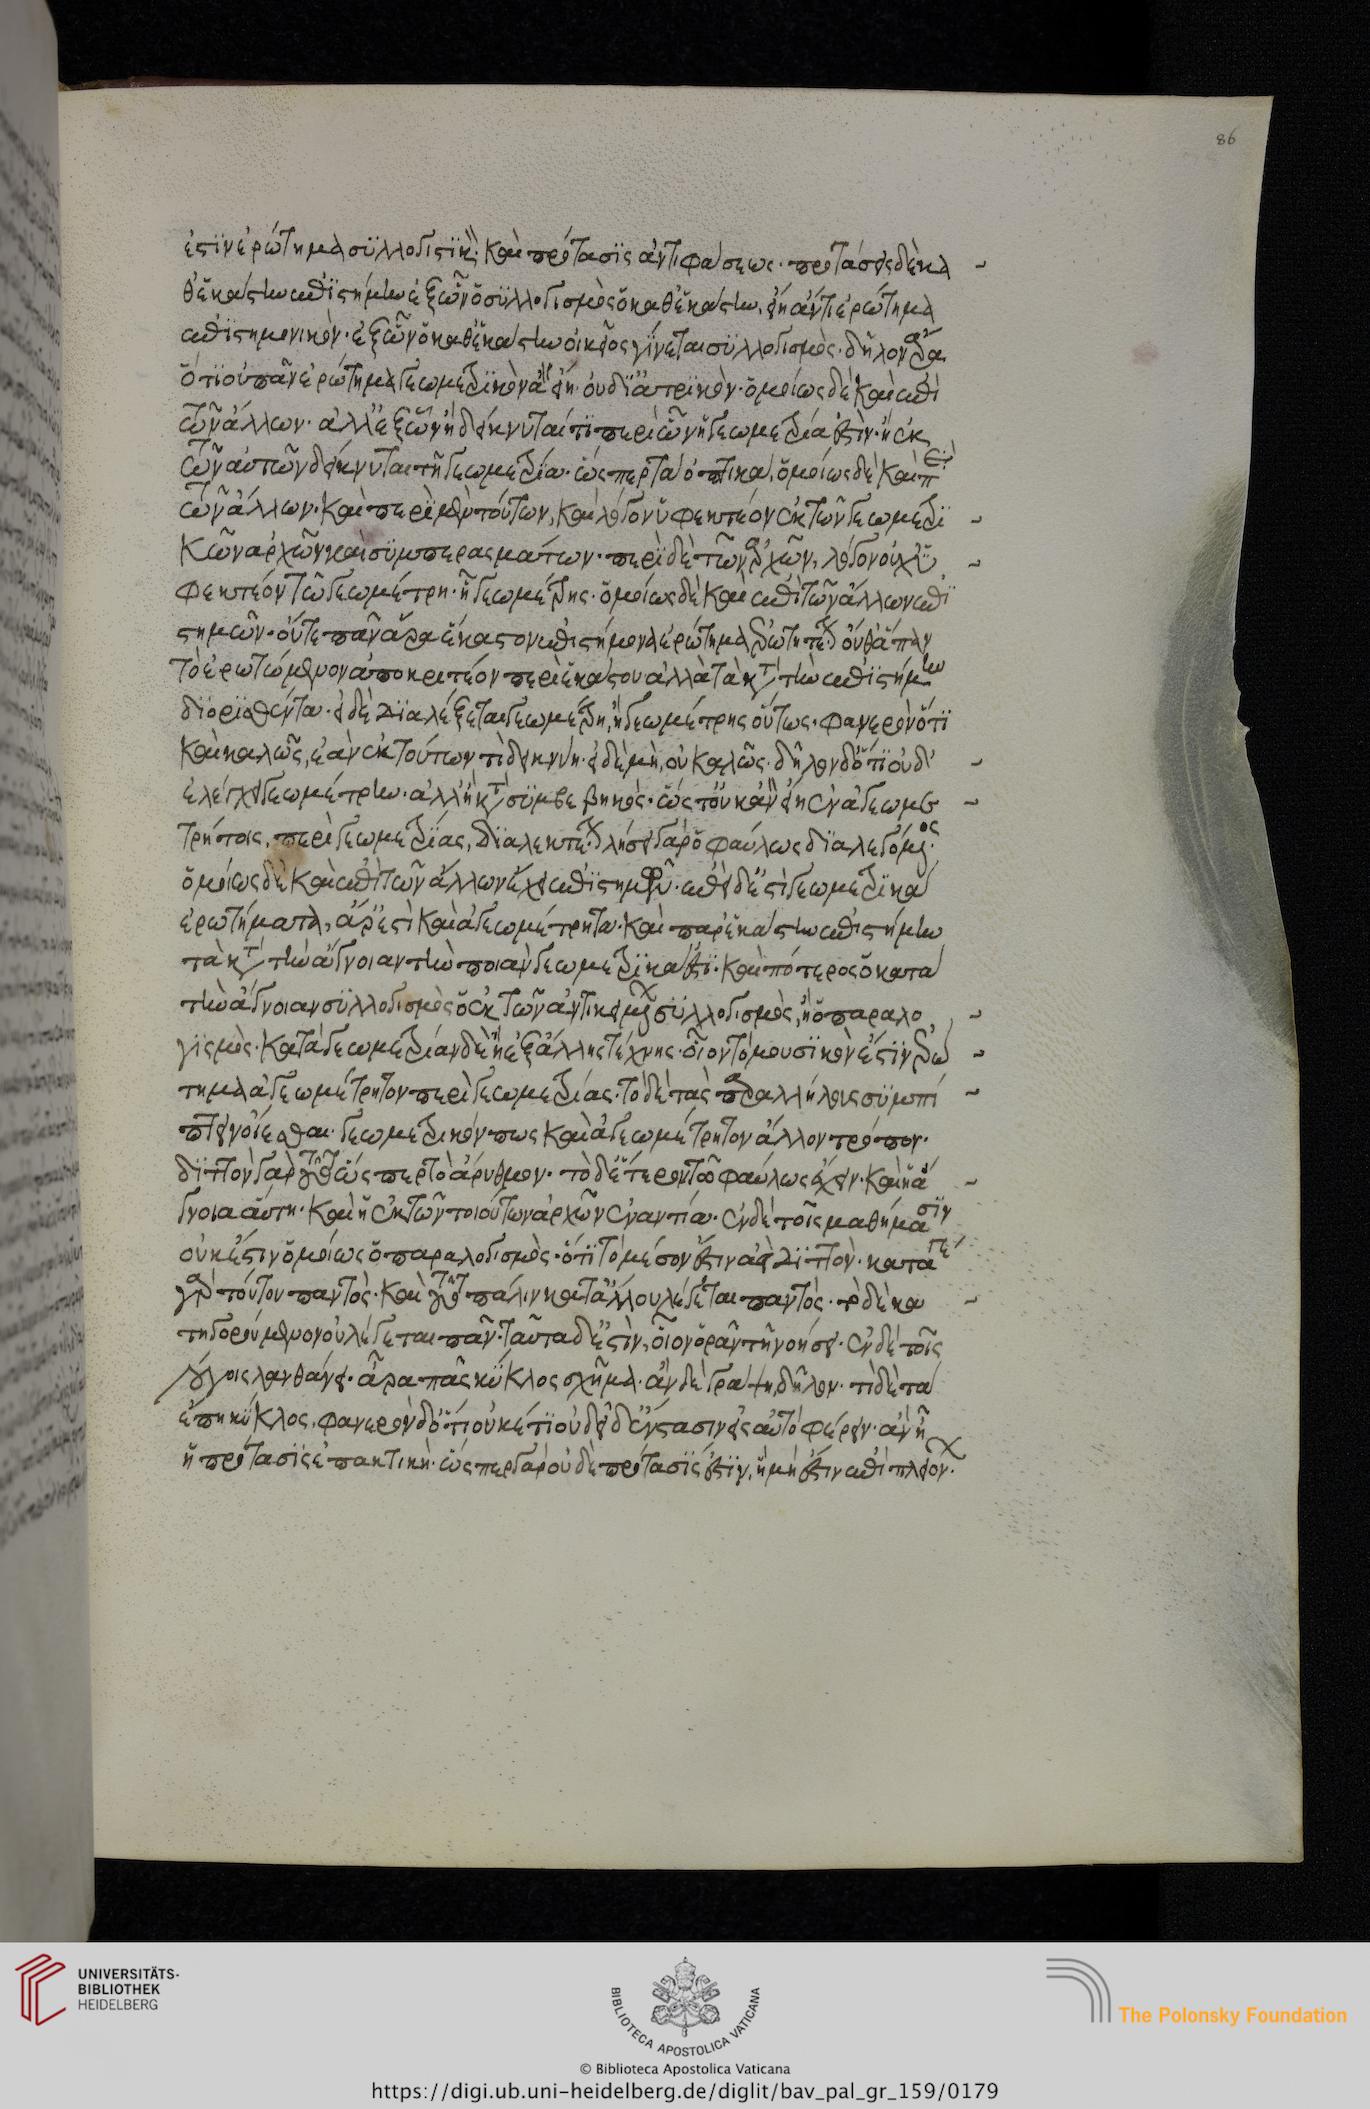 ἐστὶν ἐρώτημα συλλογιστικὸν· καὶ πρότασις ἀντιφάσεως· προτάσεις δὲ κα
θ' ἑκάστην ἐπιστήμην ἐξ ὧν ὁ συλλογισμὸς ὁ καθ' ἑκάστην, εἴη ἄν τι ἐρώτημα
ἐπιστημονικὸν· ἐξ ὧν ὁ καθ' ἑκάστην οἰκεῖος γίνεται συλλογισμὸς· δῆλον ἄρα
ὅτι οὐ πᾶν ἐρώτημα γεωμετρικὸν ἂν εἴη· οὐδ' ἰατρικὸν· ὁμοίως δὲ καὶ ἐπὶ
τῶν ἄλλων· ἀλλ' ἐξ ὧν ἢ δείκνυταί τι περὶ ὧν ἡ γεωμετρία ἐστὶν· ἢ ἐκ
τῶν αὐτῶν δείκνυται τῇ γεωμετρία· ὥσπερ τὰ ὀπτικὰ, ὁμοίως δὲ καὶ ἐπὶ
τῶν ἄλλων· καὶ περὶ μὲν τούτων, καὶ λόγον ὑφεκτέον ἐκ τῶν γεωμετρι
κῶν ἀρχῶν καὶ συμπερασμάτων· περὶ δὲ τῶν ἀρχῶν, λόγον οὐχ ὑ
φεκτέον τῶ γεωμέτρη· ἧ γεωμέτρης· ὁμοίως δὲ καὶ ἐπὶ τῶν ἄλλων ἐπι
στημῶν· οὔτε πᾶν ἄρα ἕκαστον ἐπιστήμονα ἐρώτημα ἐρωτητέον οὔθ' ἅπαν
τὸ ἐρωτώμενον ἀποκριτέον περὶ ἑκάστου ἀλλὰ τὰ κατὰ τὴν ἐπιστήμην
διορισθέντα· εἰ δὲ διαλέξεται γεωμέτρη, ἧ γεωμέτρης οὕτως· φανερὸν ὅτι
καὶ καλῶς, ἐὰν ἐκ τούτων τὶ δεικνύη· εἰ δὲ μὴ, οὐ καλῶς· δῆλον δ' ὅτι οὐδ'
ἐλέγχει γεωμέτρην· ἀλλ' ἢ κατὰ συμβεβηκὸς· ὥστ' οὐκ ἂν εἴη ἐν ἀγεωμε
τρήτοις, περὶ γεωμετρίας, διαλεκτέον· λήσει γὰρ ὁ φαύλως διαλεγόμενος·
ὁμοίως δὲ καὶ ἐπὶ τῶν ἄλλων ἔχει ἐπιστημῶν· ἐπεὶ δ' ἔστι γεωμετρικὰ
ἐρωτήματα, ἆρ' ἔστι καὶ ἀγεωμέτρητα· καὶ παρ' ἑκάστην ἐπιστήμην
τὰ κατὰ τὴν ἄγνοιαν τὴν ποιὰν γεωμετρικά ἐστι· καὶ πότερος ὁ κατὰ
τὴν ἄγνοιαν συλλογισμὸς ὁ ἐκ τῶν ἀντικειμένων συλλογισμὸς, ἢ ὁ παραλο
γισμὸς· κατὰ γεωμετρίαν δὲ ἢ ἐξ ἄλλης τέχνης· οἷον τὸ μουσικὸν ἐστὶν ἐρώ
τημα ἀγεωμέτρητον περὶ γεωμετρίας· τὸ δὲ τὰς παραλλήλους συμπί
πτειν οἴεσθαι· γεωμετρικόν πως καὶ ἀγεωμέτρητον ἄλλον τρόπον·
διττὸν γὰρ τοῦτο ὥσπερ τὸ ἄρυθμον· τὸ δ' ἕτερον τῶ φαύλως ἔχειν· καὶ ἡ ἄ
γνοια αὕτη· καὶ ἡ ἐκ τῶν τοιούτων ἀρχῶν ἐναντία· ἐν δὲ τοῖς μαθήμασιν
οὐκ ἔστιν ὁμοίως ὁ παραλογισμὸς· ὅτι τὸ μέσον ἐστὶν ἀεὶ διττὸν· κατά τε
γὰρ τούτου παντὸς· καὶ τοῦτο πάλιν κατ' ἄλλου λέγεται παντὸς· τὸ δὲ κα
τηγορούμενον οὐ λέγεται πᾶν· ταῦτα δ' ἔστὶν, οἷον ὁρᾶν τῆ νοήσει· ἐν δὲ τοῖς
λόγοις λανθάνει· ἆρα πᾶς κύκλος σχῆμα· ἂν δὲ γράψη, δῆλον· τὶ δὲ τὰ
ἔπη κύκλος, φανερὸν δ' ὅτι οὐκ ἔστι οὐ δεῖ δ' ἔνστασιν εἰς αὐτὸ φέρειν· ἂν ἦ
ἡ πρότασις ἐπακτικὴ· ὥσπερ γὰρ οὐδὲ πρότασίς ἐστιν, ἣ μή ἐστιν ἐπὶ πλειόνων·
86
UNIVERSITÄTS-
BIBLIOTHEK
HEIDELBERG
BIBLIOTECA APOSTOLICA VATICANA
The Polonsky Foundation
© Biblioteca Apostolica Vaticana
https://digi.ub.uni-heidelberg.de/diglit/bav_pal_gr_159/0179